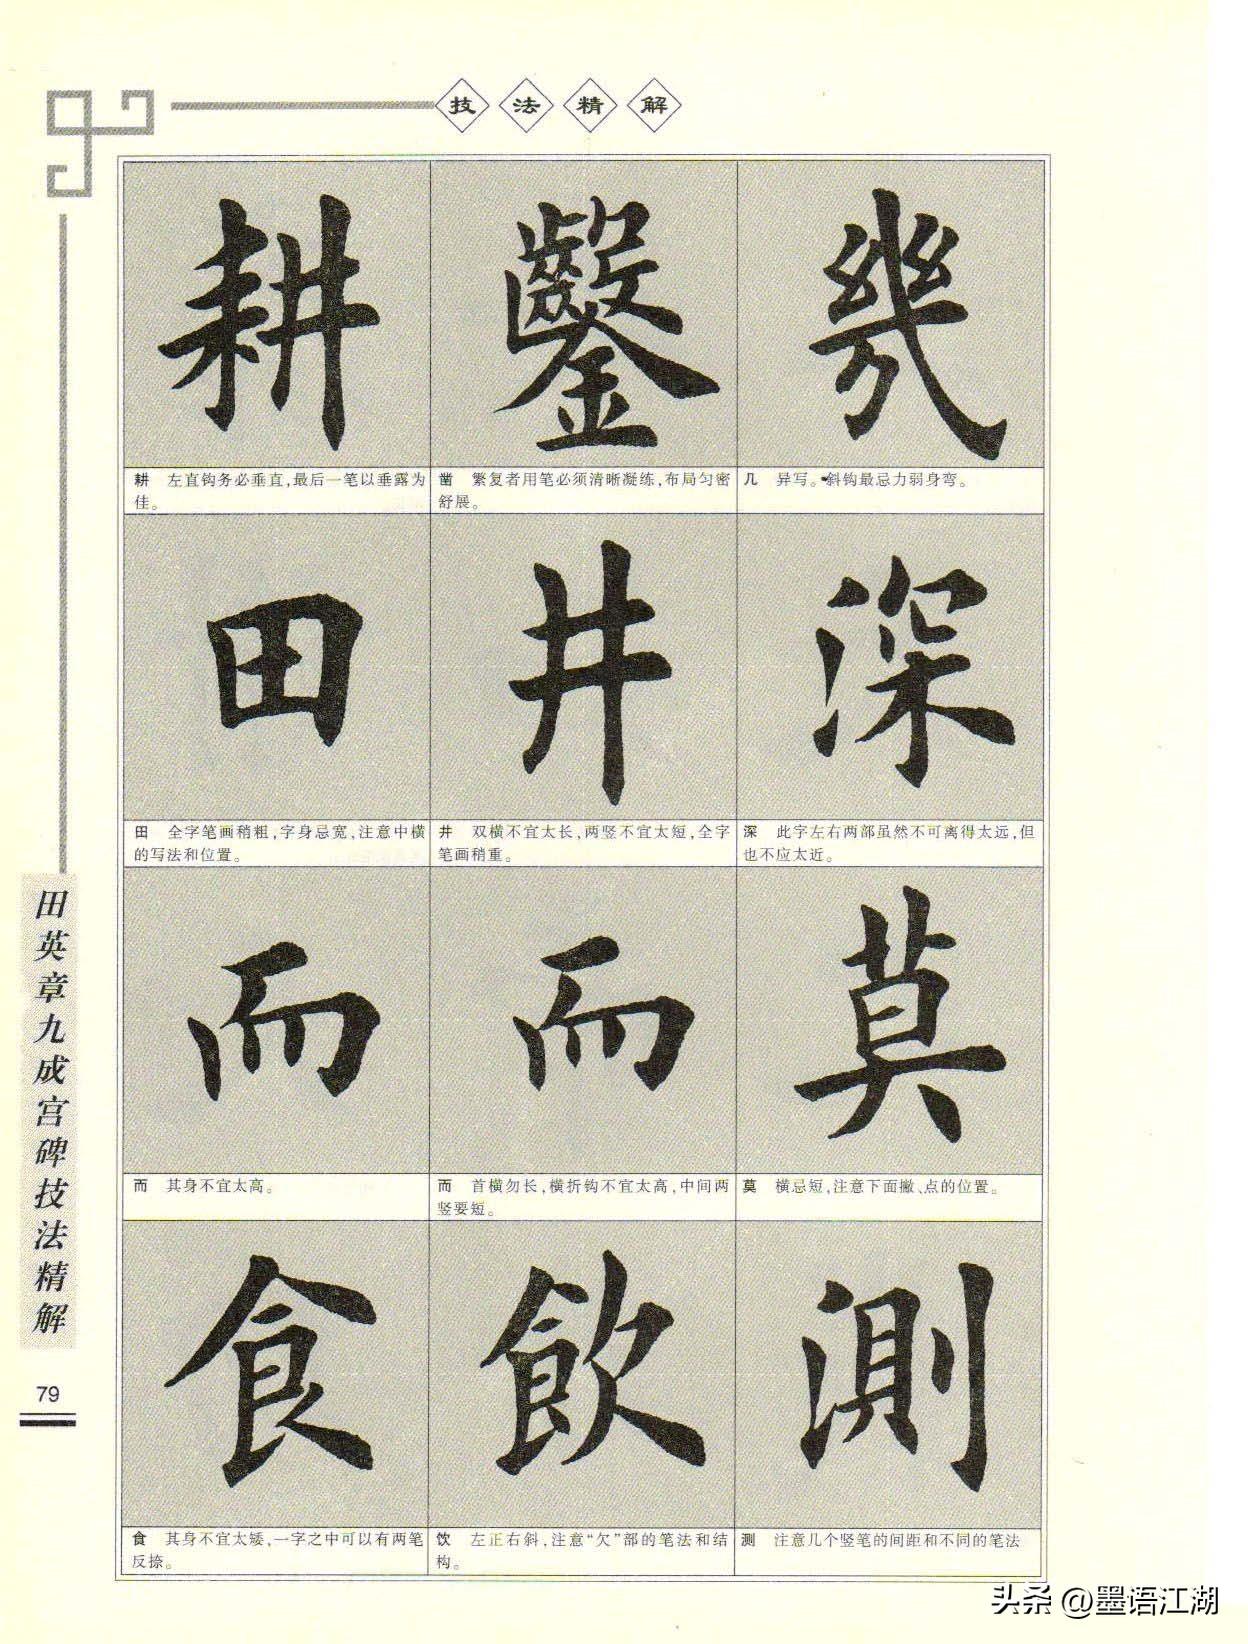 技法精解
耕 鑿 幾
耕 左直钩务必垂直,最后一笔以垂露为
佳。
凿 繁复者用笔必须清晰凝练,布局匀密
舒展。
几 异写。斜钩最忌力弱身弯。
田 井 深
田 全字笔画稍粗,字身忌宽,注意中横
的写法和位置。
井 双横不宜太长,两竖不宜太短,全字
笔画稍重。
深 此字左右两部虽然不可离得太远,但
也不应太近。
而 而 莫
而 其身不宜太高。
而 首横勿长,横折钩不宜太高,中间两
竖要短。
莫 横忌短,注意下面撇、点的位置。
食 飲 測
食 其身不宜太矮,一字之中可以有两笔
反捺。
饮 左正右斜,注意“欠”部的笔法和结
构。
测 注意几个竖笔的间距和不同的笔法
田英章九成宫碑技法精解
79
头条 @墨语江湖